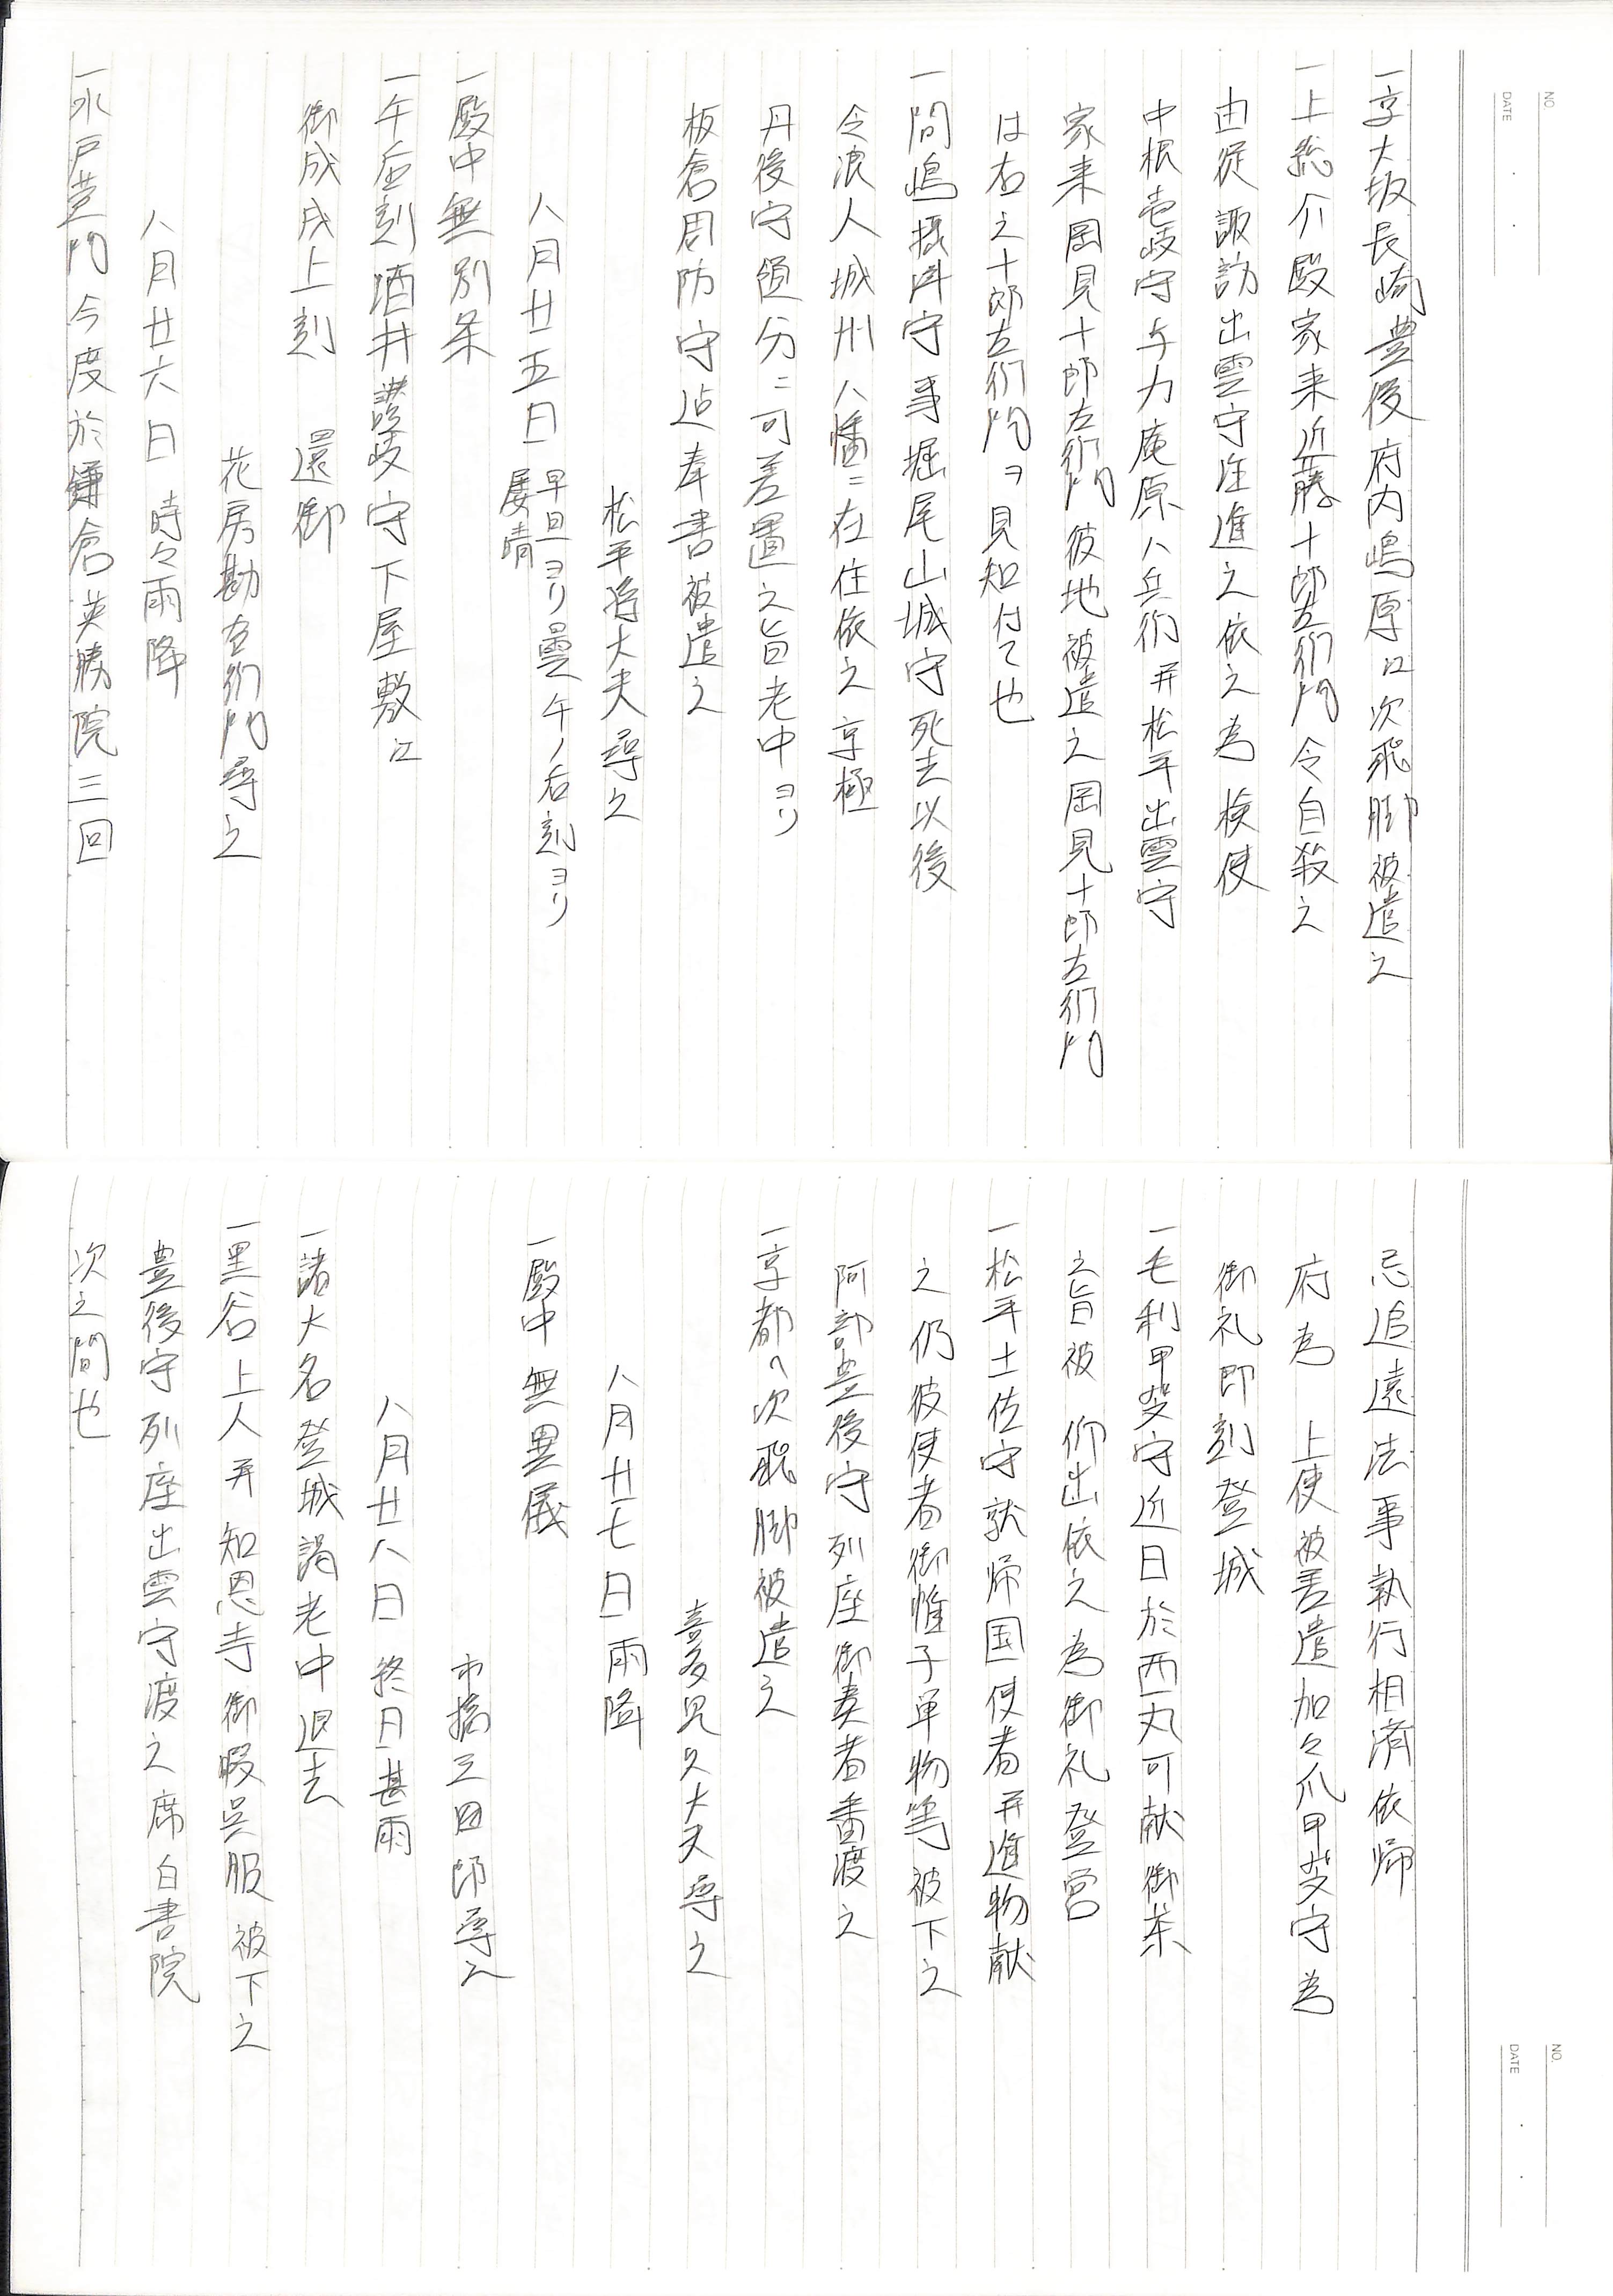 NO.
DATE
一京大坂長崎豊後府内嶋原江次飛脚被遣之
一上総介殿家来近藤十郎左衛門令自殺之
由従諏訪出雲守注進之依之為検使
中根壱岐守与力庵原八兵衛并松平出雲守
家来岡見十郎左衛門彼地被遣之岡見十郎左衛門
は右之十郎左衛門ヲ見知付て也
一間嶋摂津守事堀尾山城守死去以後
令浪人城州八幡ニ在住依之京極
丹後守領分ニ可差置之旨老中ヨリ
板倉周防守迄奉書被遣之
松平将大夫尋之
八月廿五日 早旦ヨリ曇午ノ后刻ヨリ
屡晴
一殿中無別条
一午后刻酒井讃岐守下屋敷江
御成戌上刻 還御
花房勘右衛門尋之
八月廿六日 時々雨降
一水戸黄門今度於鎌倉英勝院三回
NO.
DATE
忌追遠法事執行相済依帰
府為 上使被差遣加々爪甲斐守為
御礼即刻登城
一毛利甲斐守近日於西丸可献御茶
之旨被 仰出依之為御礼登営
一松平土佐守就帰国使者并進物献
之仍彼使者御帷子単物等被下之
阿部豊後守列座御奏者番渡之
一京都へ次飛脚被遣之
喜多見久大夫尋之
八月廿七日 雨降
一殿中無異儀
市橋三四郎尋之
八月廿八日 終日甚雨
一諸大名登城謁老中退去
一黒谷上人并知恩寺御暇呉服被下之
豊後守列座出雲守渡之席白書院
次之間也